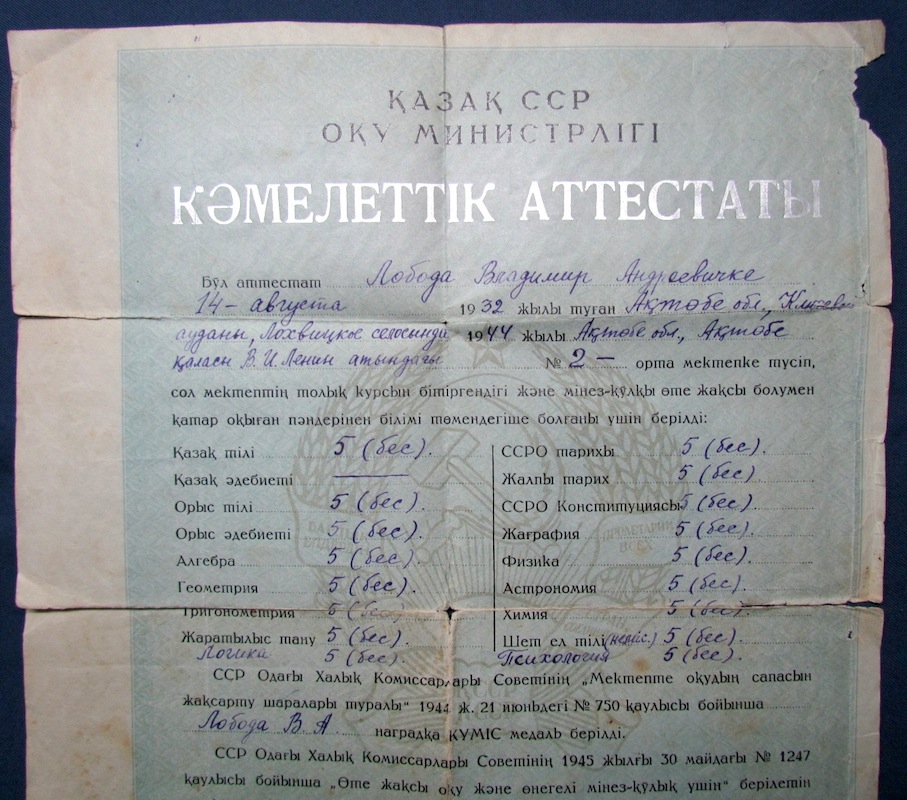 ҚАЗАҚ ССР
ОҚУ МИНИСТРЛІГІ
КӘМЕЛЕТТІК АТТЕСТАТЫ
Бұл аттестат Лобода Владимир Андреевичке
14 - августа 1932 жылы туған Ақтөбе обл.,
ауданы, Лохвицкое селосында 1944 жылы Ақтөбе обл., Ақтөбе
қаласы В. И. Ленин атындағы № 2 — орта мектепке түсіп,
сол мектептің толық курсын бітіргендігі және мінез-құлқы өте жақсы болумен
қатар оқыған пәндерінен білімі төмендегіше болғаны үшін берілді:
Қазақ тілі 5 (бес).
Қазақ әдебиеті ———
Орыс тілі 5 (бес).
Орыс әдебиеті 5 (бес).
Алгебра 5 (бес).
Геометрия 5 (бес).
Тригонометрия 5 (бес).
Жаратылыс тану 5 (бес).
Логика 5 (бес).
ССРО тарихы 5 (бес).
Жалпы тарих 5 (бес).
ССРО Конституциясы 5 (бес).
Жағрафия 5 (бес).
Физика 5 (бес).
Астрономия 5 (бес).
Химия 5 (бес).
Шет ел тілі (немис.) 5 (бес).
Психология 5 (бес).
ССР Одағы Халық Комиссарлары Советінің „Мектепте оқудың сапасын
жақсарту шаралары туралы“ 1944 ж. 21 июньдегі № 750 қаулысы бойынша
Лобода В. А наградқа КҮМІС медаль берілді.
ССР Одағы Халық Комиссарлары Советінің 1945 жылғы 30 майдағы № 1247
қаулысы бойынша „Өте жақсы оқу және өнегелі мінез-құлық үшін“ берілетін